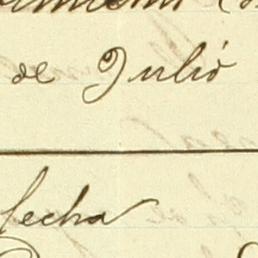 de Julió
fecha